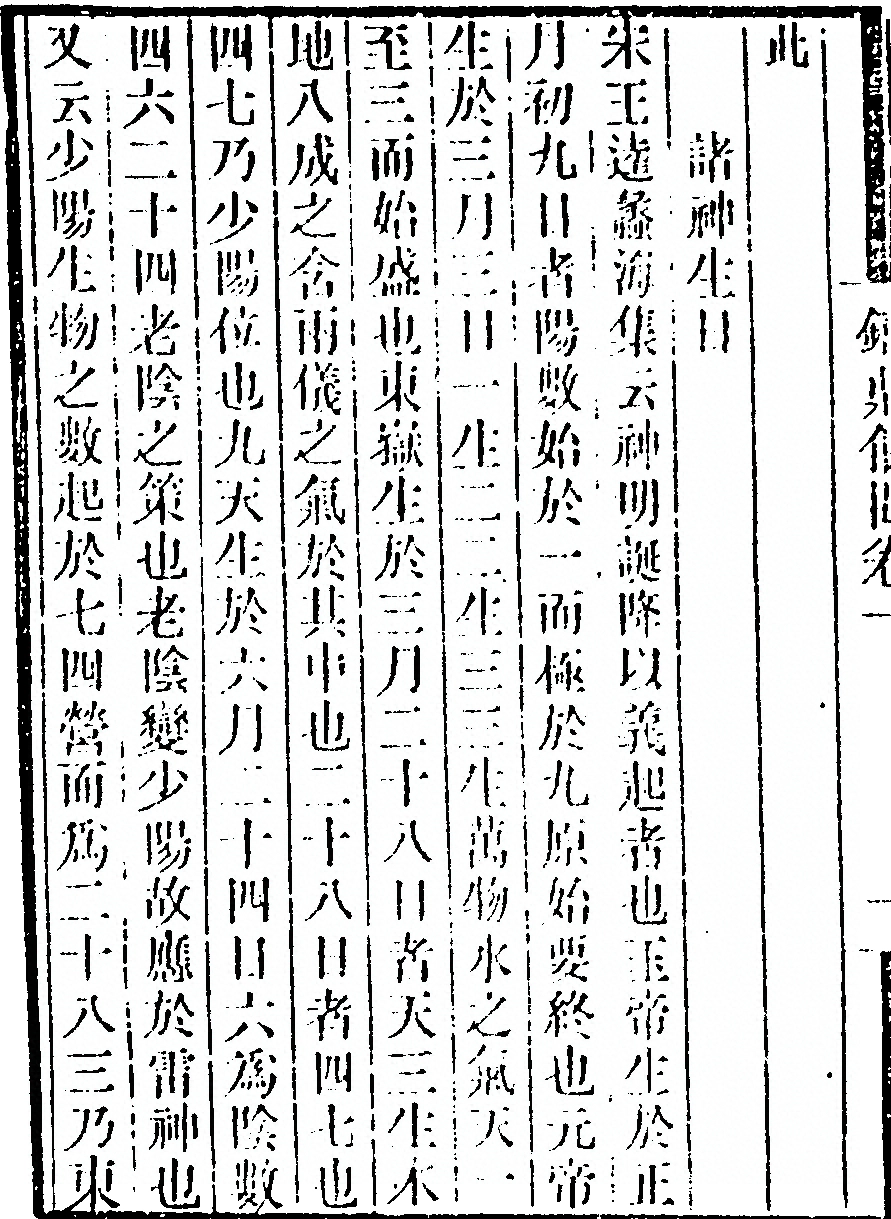 鑄鼎餘聞卷一
此
諸神生日
宋王逵蠡海集云神明誕降以義起者也玉帝生於正
月初九日者陽數始於一而極於九原始要終也元帝
生於三月三日一生二二生三三生萬物水之氣天一
至三而始盛也東嶽生於三月二十八日者天三生木
地八成之含兩儀之氣於其中也二十八日者四七也
四七乃少陽位也九天生於六月二十四日六爲陰數
四六二十四老陰之策也老陰變少陽故應於雷神也
又云少陽生物之數起於七四營而爲二十八三乃東